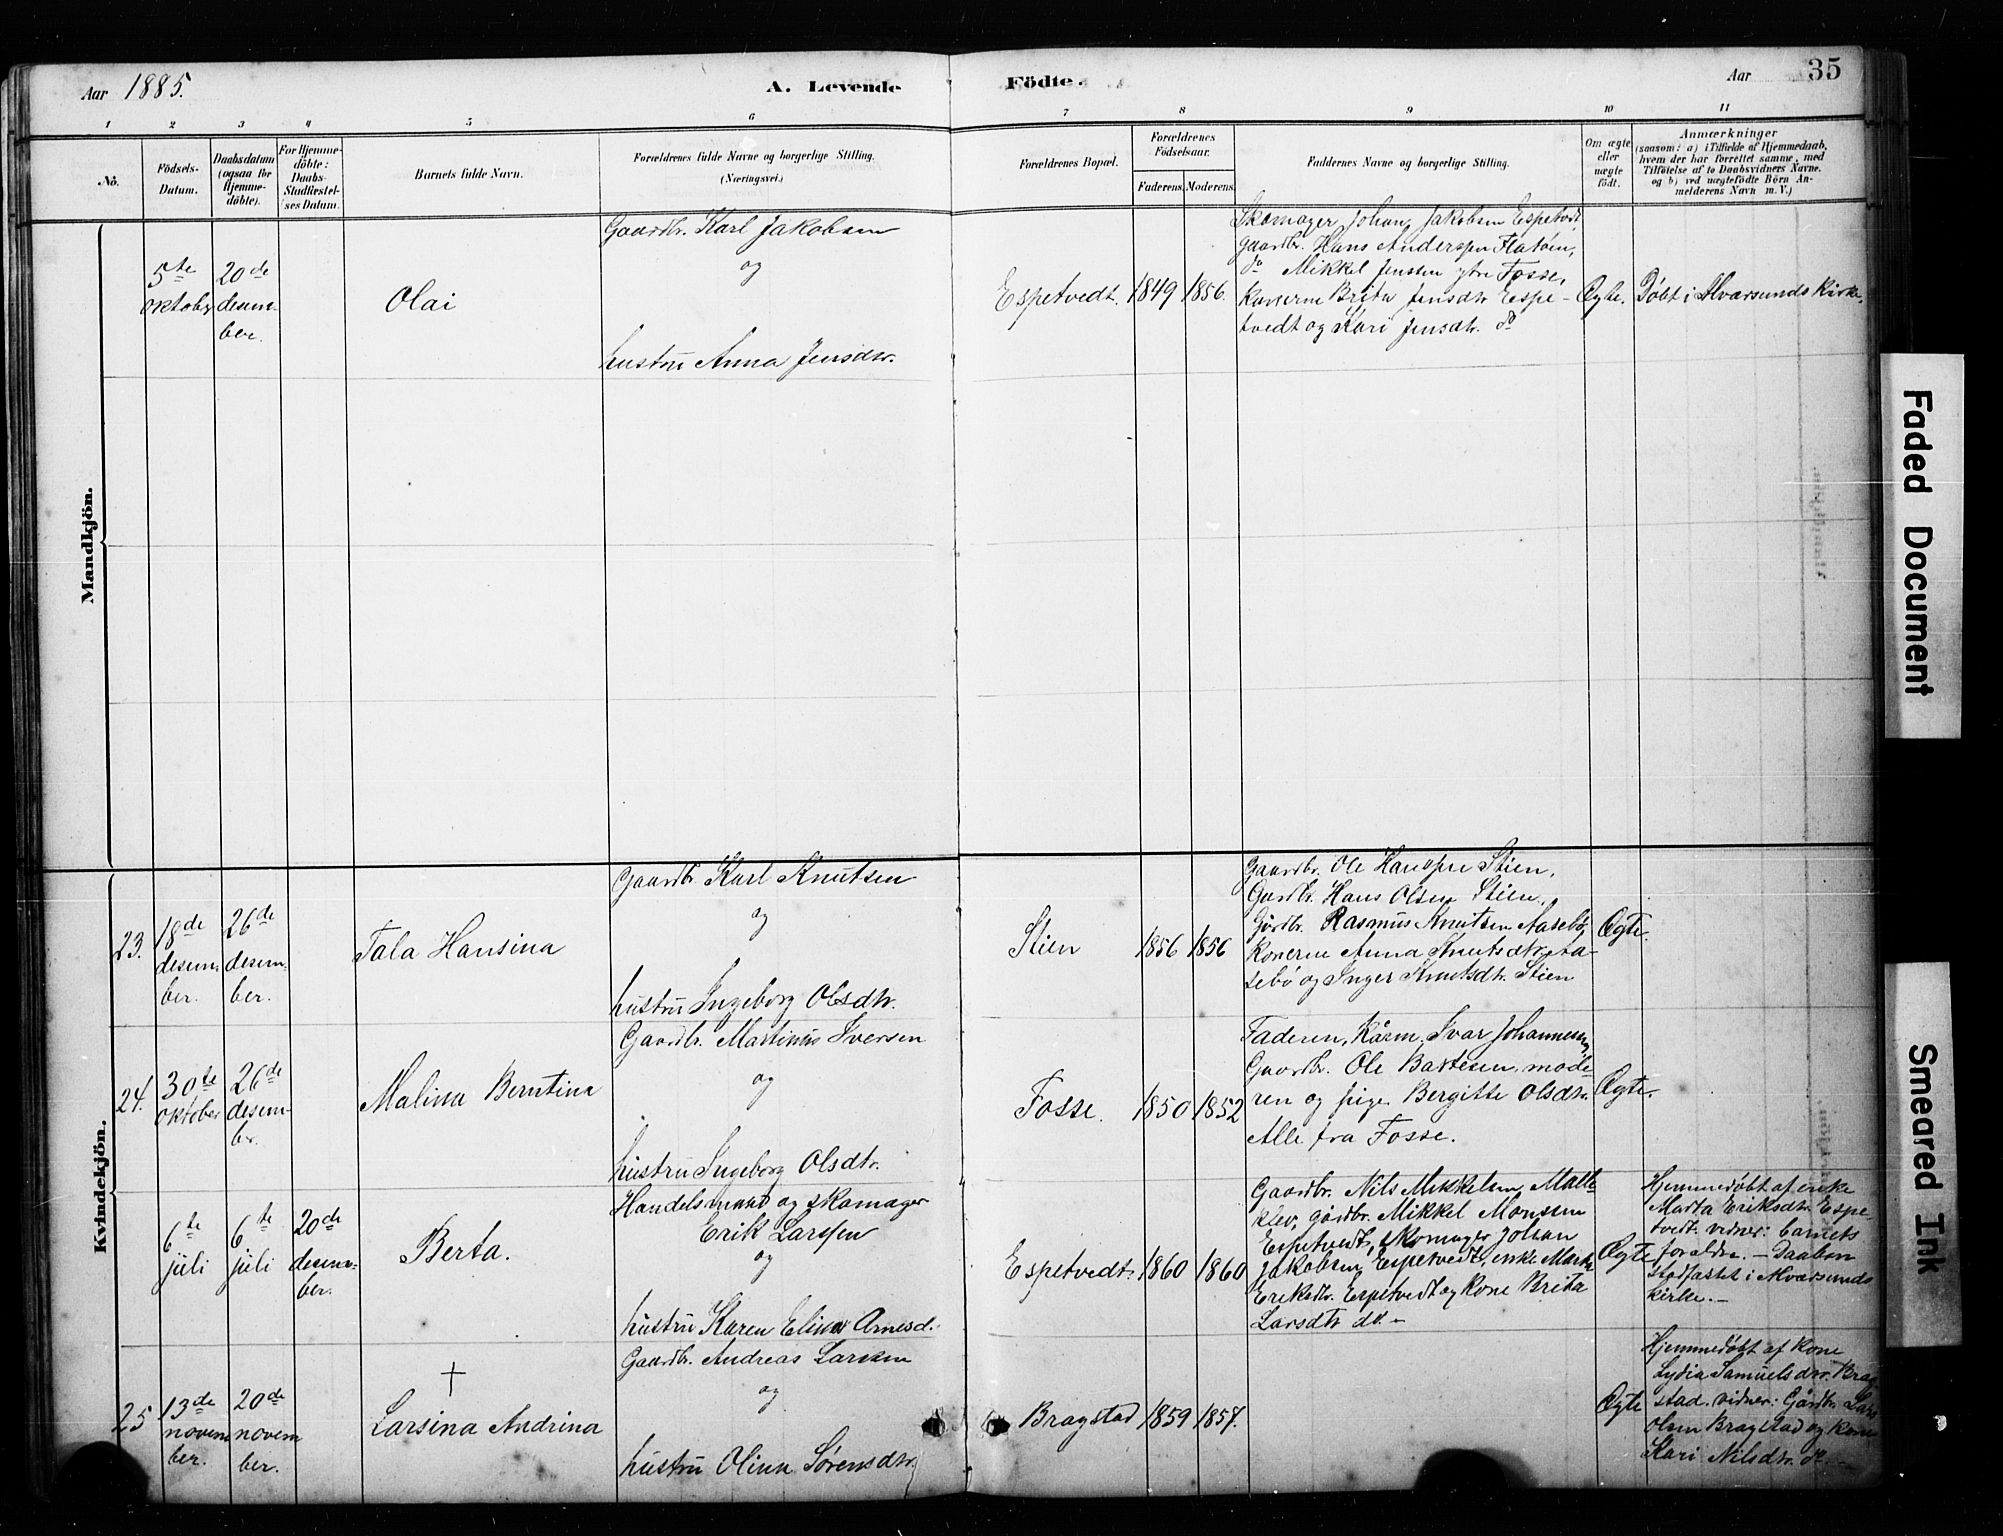 Aar 1885.
A. Levende Födte.
Aar
35
1 2 3 4 5 6 7 8 9 10 11
No.
Födsels-
Datum.
Daabsdatum
(ogsaa for
Hjemme-
döbte).
For Hjemme-
döbte:
Daabs-
Stadfæstel-
ses Datum.
Barnets fulde Navn.
Forældrenes fulde Navne og borgerlige Stilling.
(Næringsvei.)
Forældrenes Bopæl.
Forældrenes
Födselsaar.
Faderens. Moderens.
Faddernes Navne og borgerlige Stilling.
Om ægte
eller
uægte
født.
Anmærkninger
(saasom: a) i Tilfælde af Hjemmedaab,
hvem der har forrettet samme, med
Tilföielse af to Daabsvidners Navne,
og b) ved uægtefödte Börn An-
melderens Navn m. V.)
Mandkjön.
5te
oktober
20de
desem-
ber.
Olai
Gaardbr. Karl Jakobsen
og
hustru Anna Jensdtr.
Espetvedt.
1849
1856.
Skomager Johan Jakobsen Espetvedt,
gaardbr. Hans Anderssen Flatøen,
do Mikkel Jenssen ytre Fosse,
Konerne Brita Jensdtr Espe-
tvedt og Kari Jensdtr. do
Ægte.
Døbt i Alværsunds Kirke.
Kvindekjön.
23.
18de
desem-
ber.
26de
desem-
ber.
Tala Hansina
Gaardbr Karl Knutsen
og
hustru Ingeborg Olsdtr.
Stien
1856
1856
Gaardbr. Ole Hanssen Stien,
Gardbr. Hans Olsen Stien,
Gårdbr. Rasmus Knutsen Aasebø,
Konerne Anna Knutsdtr. Aa-
sebø og Inger Knutsdtr. Stien
Ægte.
24.
30te
oktober
26de
desem-
br.
Malina Berntina
Gaardbr. Martinus Iversen
og
hustru Ingeborg Olsdtr.
Fosse.
1850
1852
Faderen, Kårm. Ivar Johannesen,
Gaardbr. Ole Bartesen, mode-
ren og pige Bergitte Olsdtr.
Alle fra Fosse.
Ægte.
6te
juli
6te
juli
20de
desem-
ber.
Berta.
Handelsmand og skomager
Erik Larssen
og
hustru Karen Elina Arnesd.
Espetvedt.
1860
1860
Gaardbr. Nils Mikkelsen Matle-
klev, gårdbr. Mikkel Monsen
Espetvedt, skomager Johan
Jakobsen Espetvedt, enke Marta
Eriksdtr. Espetvedt og Kone Brita
Larsdtr do. -
Ægte
Hjemmedøbt af enke
Marta Eriksdtr. Espe-
tvedt. vidner: barnets
forældre. - Daaben
stadfæstet i Alværsunds
kirke. -
25
13de
novem
ber.
20de
novem
ber.
+
Larsina Andrina
Gaardbr. Andreas Larsen
og
hustru Olina Sørensdtr
Bragstad
1859
1857.
Ægte
Hjemmedøbt af Kone
Lydia Samuelsdtr. Brag
stad. vidner: Gårdbr. Lars
Olsen Bragstad og Kone
Kari Nilsdtr. do. -
Faded Document
Smeared Ink